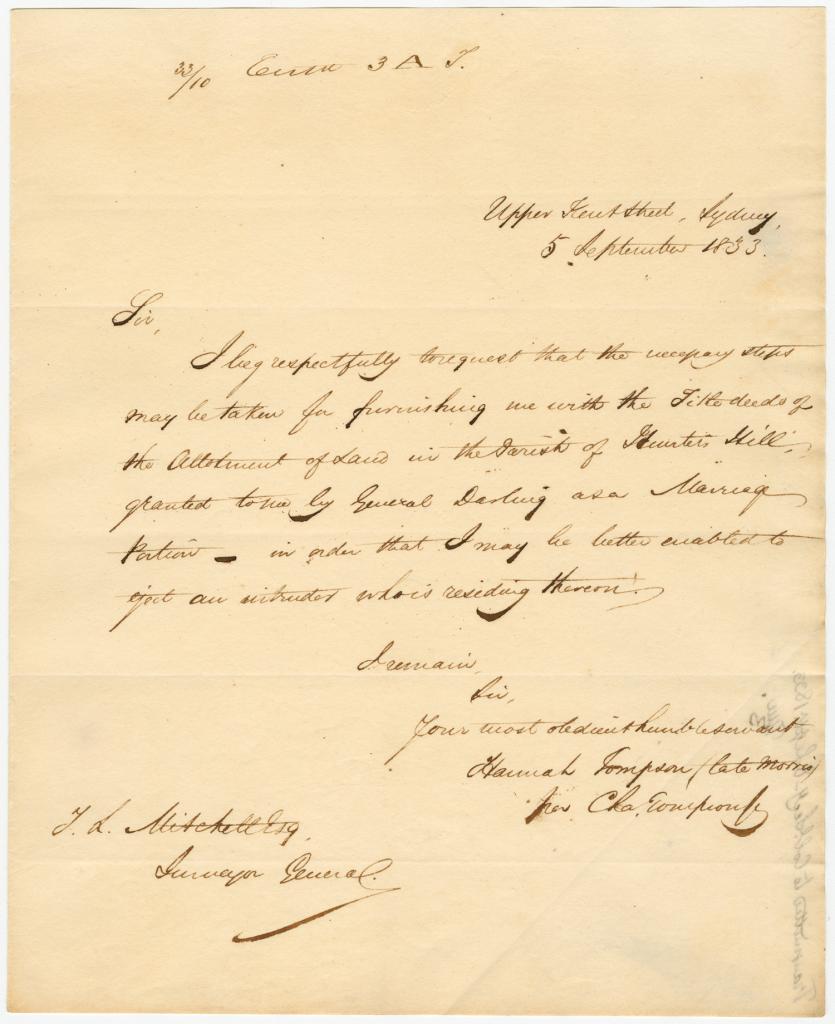 33/10 3 A T.
Upper Kent Street, Sydney,
5 September 1833.
Sir,
I beg respectfully to request that the necessary steps
may be taken for furnishing me with the Title deeds of
the Allotment of Land in the Parish of Hunter's Hill,
granted to me by General Darling as a Marriage
Portion — in order that I may be better enabled to
eject an intruder who is residing thereon.
I remain,
Sir,
Your most obedient humble servant
Hannah Tompson (late Morris)
per Cha. Tompson Jr
T. L. Mitchell Esq
Surveyor General.